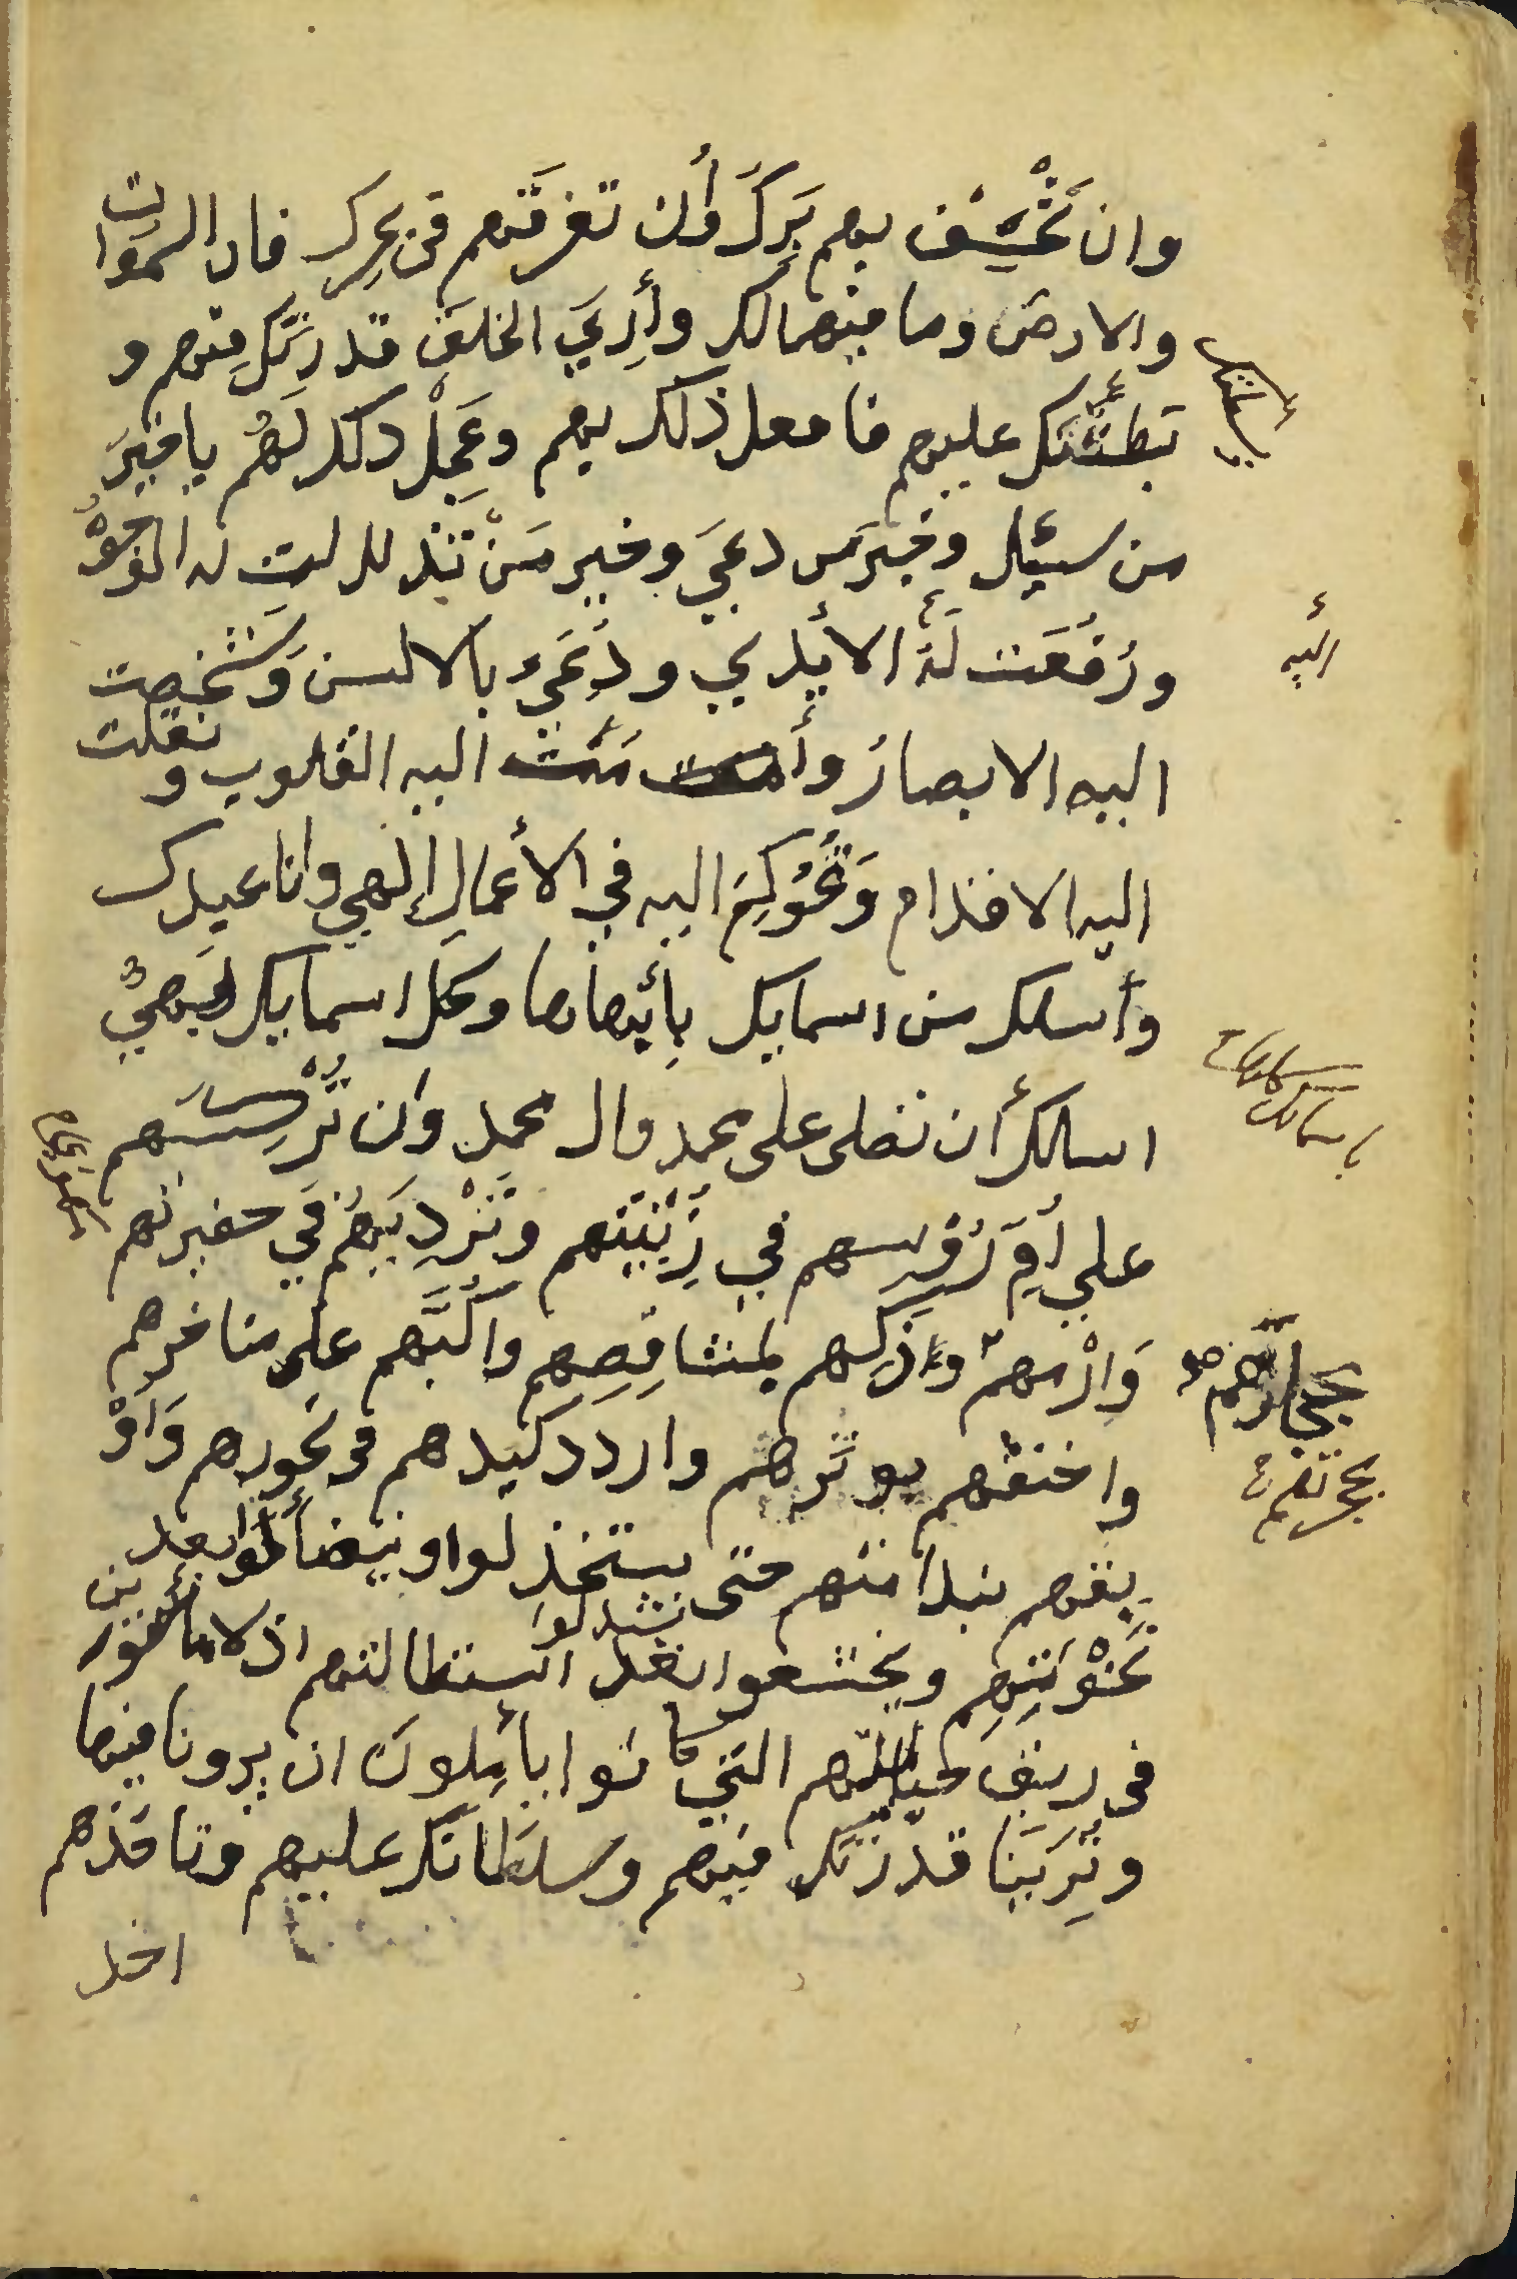 وان تَخْسِف بهم بَرِّكَ وأن تغرقهم في بحرك فان السموات
والارض وما فيهما لك وأرِيَ الخلق قدرتَك فيهم و
بَطشَتَكَ عليهم فافعل ذلك بهم وعَجِّلْ ذلك لَهُم يا خَيرَ
من سئل وخيرَ من دعيَ وخير مَنْ تذللت له الوجُوْهُ
ورُفعَت لَهُ الأيدي ودُعيَ بالالسن وَشَخَصت
اليه الابصارُ وأمَّت اليه القلوب و نقلت
اليه الاقدام وَتُحُوْكِمَ اليه في الأعمال إلهي وانا عبدك
وأسلك من اسمايك بأبْهَاها وكل اسمايك بَهِيٌّ
اسالك أن تصلى على محمد وال محمد وان تُرْكِسَهم
علي أمّ رُؤسهم في زُبْيَتِهم وتَرْدِيَهُم في حفيرتهم
وَارْمهِمْ وذكهم بمشاقِصِهِم واكُبَّهم على مناخرهم
واخنقهم بوتَرهم واردد كيدهم في نحورهم وَاَوْ
بقهم بندامتهم حتى يستخذلوا ويتضألوا بعد
نَخْوَتِهِم ويخشعوا بعد استطالتهم اذلا مأسورين
في رِبَق حبائلهم التي كانوا يأمِلونَ ان يرونا فيها
وتُرِيَنا قدرتك فيهم وسلطانك عليهم وتاخذهم
اخذ
اليه